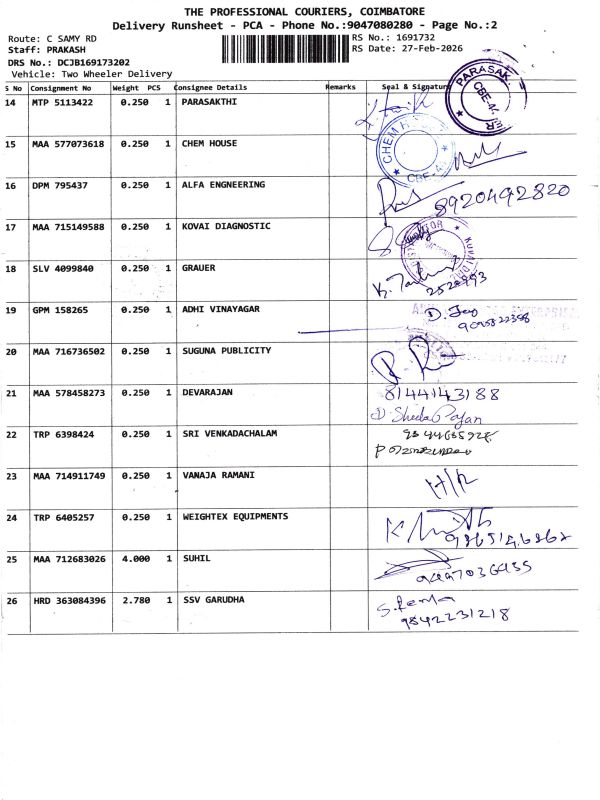 THE PROFESSIONAL COURIERS, COIMBATORE
Delivery Runsheet - PCA - Phone No.:9047080280 - Page No.:2
Route: C SAMY RD
RS No.: 1691732
Staff: PRAKASH
RS Date: 27-Feb-2026
DRS No.: DCJB169173202
Vehicle: Two Wheeler Delivery
S No Consignment No Weight PCS Consignee Details Remarks Seal & Signature
14 MTP 5113422 0.250 1 PARASAKTHI
PARASAK
CBE-4
15 MAA 577073618 0.250 1 CHEM HOUSE
CHEM H
CBE-4
16 DPM 795437 0.250 1 ALFA ENGNEERING
8920492820
17 MAA 715149588 0.250 1 KOVAI DIAGNOSTIC
KOVAI
18 SLV 4099840 0.250 1 GRAUER
19 GPM 158265 0.250 1 ADHI VINAYAGAR
20 MAA 716736502 0.250 1 SUGUNA PUBLICITY
21 MAA 578458273 0.250 1 DEVARAJAN
8144143188
22 TRP 6398424 0.250 1 SRI VENKADACHALAM
23 MAA 714911749 0.250 1 VANAJA RAMANI
H/R
24 TRP 6405257 0.250 1 WEIGHTEX EQUIPMENTS
25 MAA 712683026 4.000 1 SUHIL
26 HRD 363084396 2.780 1 SSV GARUDHA
9842231218